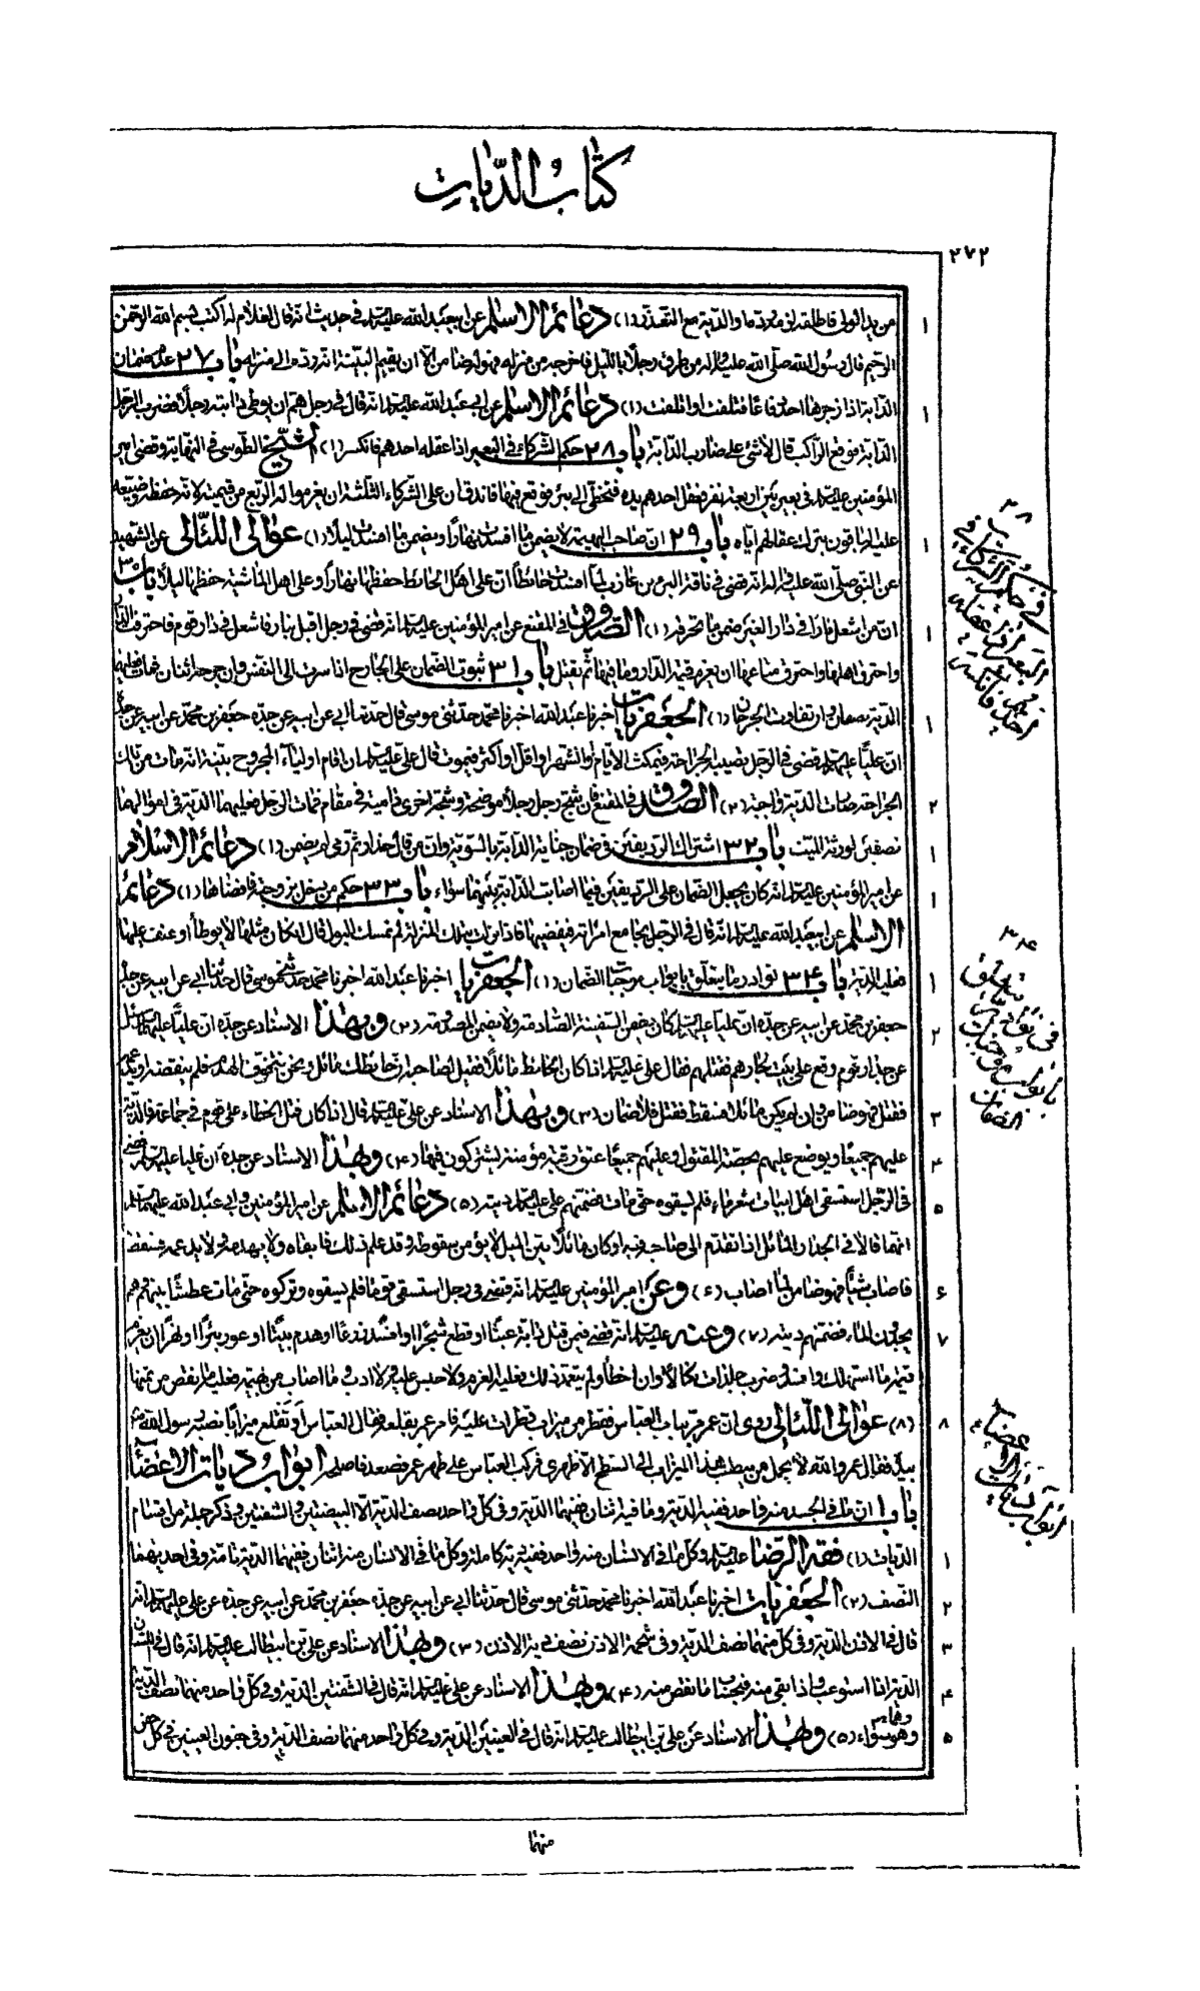 كتاب الديات
٢٧٢
من يد الولي فاطلقه لزمه ردّه او الدية مع التعذر (١) دعائم الاسلام عن ابيعبد الله عليه السلم في حديث انه قال لغلام له اكتب بسم الله الرحمن
الرحيم قال رسول الله صلى الله عليه واله من طرق رجلا بالليل فاخرجه من منزله فهو له ضامن الا ان يقيم البينة انه رده الى منزله باب ٢٧ عدم ضمان
الدابة اذا زجرها احد دفاعا فتلفت او اتلفت (١) دعائم الاسلام عن ابي عبد الله عليه السلم انه قال في رجل هم ان يوطي دابته رجلا فضرب الرجل
الدابة فوقع الراكب قال لا شئ على ضارب الدابة باب ٢٨ حكم الشركاء في البعير اذا عقله احدهم فانكسر (١) الشيخ الطوسي في النهاية وقضى امير
المؤمنين عليه السلم في بعير بين اربعة نفر فعقل احدهم يده فتخطى الى بئر فوقع فيها فاندق ان على الشركاء الثلثة ان يغرموا له الربع من قيمته لانه حفظه وضيعه
عليه الباقون بترك عقالهم اياه باب ٢٩ ان صاحب البهيمة لا يضمن ما افسدت نهارا ويضمن ما افسدت ليلا (١) عوالي اللئالي عن الشهيد
عن النبي صلى الله عليه واله انه قضى في ناقة البراء بن عازب لما افسدت حائطا ان على اهل الحائط حفظها نهارا وعلى اهل الماشية حفظها ليلا باب ٣٠
ان من اشعل نارا في دار الغير ضمن ما تحرقه (١) الصدوق في المقنع عن امير المؤمنين عليه السلم انه قضى في رجل اقبل بنار فاشعل في دار قوم فاحترقت الدار
واحترق اهلها واحترق متاعها ان يغرم قيمة الدار وما فيها ثم يقتل باب ٣١ ثبوت الضمان على الجارح اذا سرت الى النفس وان جرحه اثنان فمات فعليهما
الدية نصفان وان تفاوت الجرحان (١) الجعفريات اخبرنا عبد الله اخبرنا محمد حدثني موسى قال حدثنا ابي عن ابيه عن جده جعفر بن محمد عن ابيه عن جده
ان عليا عليه السلم قضى في الرجل يصيبه الجراحة فيمكث الايام والشهر او اقل او اكثر فيموت قال علي عليه السلم ان اقام اولياء المجروح بينة انه مات من تلك
الجراحة ضمات الدية واجبة (٢) الصدوق في المقنع فان شج رجل رجلا موضحة وشجه اخرى دامية في مقام فمات الرجل فعليهما الدية في اموالهما
نصفين لورثة الميت باب ٣٢ اشتراك الرديفين في ضمان جناية الدابة بالسوية وان من قال حذار ثم رمى لم يضمن (١) دعائم الاسلام
عن امير المؤمنين عليه السلم انه كان يجعل الضمان على الرديفين فيما اصابت الدابة بينهما سواء باب ٣٣ حكم من دخل بزوجته فافضاها (١) دعائم
الاسلام عن ابيعبد الله عليه السلم انه قال في الرجل يجامع امراته فيفضيها فاذا نزلت بتلك المنزلة لم تمسك البول قال ان كان مثلها لا يوطأ او عنف عليها
فعليه الدية باب ٣٤ نوادر ما يتعلق بابواب موجبات الضمان (١) الجعفريات اخبرنا عبد الله اخبرنا محمد حدثني موسى قال حدثنا ابي عن ابيه عن جده
جعفر بن محمد عن ابيه عن جده ان عليا عليه السلم كان يضمن السفينة الصادمة ولا يضمن المصدومة (٢) وبهذا الاسناد عن جده ان عليا عليه السلم سئل
عن جدار قوم وقع على بيت لجارهم فقتلهم فقال علي عليه السلم اذا كان الحائط مائلا فقيل لصاحبه ان حائطك مائل ونحن نتخوف الهدم فلم ينقضه او يدعمه
فقتل فهو ضامن وان لم يكن مائلا فسقط فقتل فلا ضمان (٣) وبهذا الاسناد عن علي عليه السلم قال اذا كان قتل الخطاء على قوم في جماعة فالدية
عليهم جميعا ويوضع عليهم بحصة المقتول وعليهم جميعا عتق رقبة مؤمنة يشتركون فيها (٤) وبهذا الاسناد عن جده ان عليا عليه السلم قضى
في الرجل استسقى اهل ابيات شعر ماء فلم يسقوه حتى مات فضمنهم علي عليه السلم ديته (٥) دعائم الاسلام عن امير المؤمنين وابي عبد الله عليهما السلم
انهما قالا في الجدار المائل اذا تقدم الى صاحبه فيه او كان مائلا بين الميل لا يؤمن سقوطه وقد علم ذلك فابقاه ولا يهدمه ولا يدعمه فسقط
فاصاب شيئا فهو ضامن لما اصاب (٦) وعن امير المؤمنين عليه السلم انه قضى في رجل استسقى قوما فلم يسقوه وتركوه حتى مات عطشا بينهم وهم
يجدون الماء فضمنهم ديته (٧) وعنه عليه السلم انه قضى فيمن قتل دابة عبثا او قطع شجرا او افسد زرعا او هدم بيتا او عور بئرا او نهرا ان يغرم
قيمة ما استهلك وافسد وضرب جلدات نكالا وان اخطأ ولم يتعمد ذلك فعليه الغرم ولا حبس عليه ولا ادب وما اصاب من بهيمة فعليه ما نقص من ثمنها
(٨) عوالي اللئالي روى ان عمر مر بباب العباس فقطر من ميزاب قطرات عليه فامر عمر بقلعه فقال العباس او تقلع ميزابا نصبه رسول الله ص
بيده فقال عمر والله لا يحمل من ينصب هذا الميزاب الى السطح الا ظهري فركب العباس على ظهر عمر فصعد فاصلحه ابواب ديات الاعضاء
باب ١ ان ما في الجسد منه واحد ففيه الدية وما فيه اثنان ففيهما الدية وفي كل واحد نصف الدية الا البيضتين والشفتين وذكر جملة من اقسام
الديات (١) فقه الرضا عليه السلم وكل ما في الانسان منه واحد ففيه دية كاملة وكل ما في الانسان منه اثنان ففيهما الدية تامة وفي احديهما
النصف (٢) الجعفريات اخبرنا عبد الله اخبرنا محمد حدثني موسى قال حدثنا ابي عن ابيه عن جده جعفر بن محمد عن ابيه عن جده عن علي عليه السلم انه
قال في الاذن الدية وفي كل منهما نصف الدية وفي شحمة الاذن نصف دية الاذن (٣) وبهذا الاسناد عن علي بن ابيطالب عليه السلم انه قال في اللسان
الدية اذا استوعب واذا بقي منه فبحساب ما نقص منه (٤) وبهذا الاسناد عن علي عليه السلم انه قال في الشفتين الدية وفي كل واحد منهما نصف الدية
وهو سواء (٥) وبهذا الاسناد عن علي بن ابيطالب عليه السلم انه قال في العينين الدية وفي كل واحد منهما نصف الدية وفي جفون العينين في كل جفن
منها